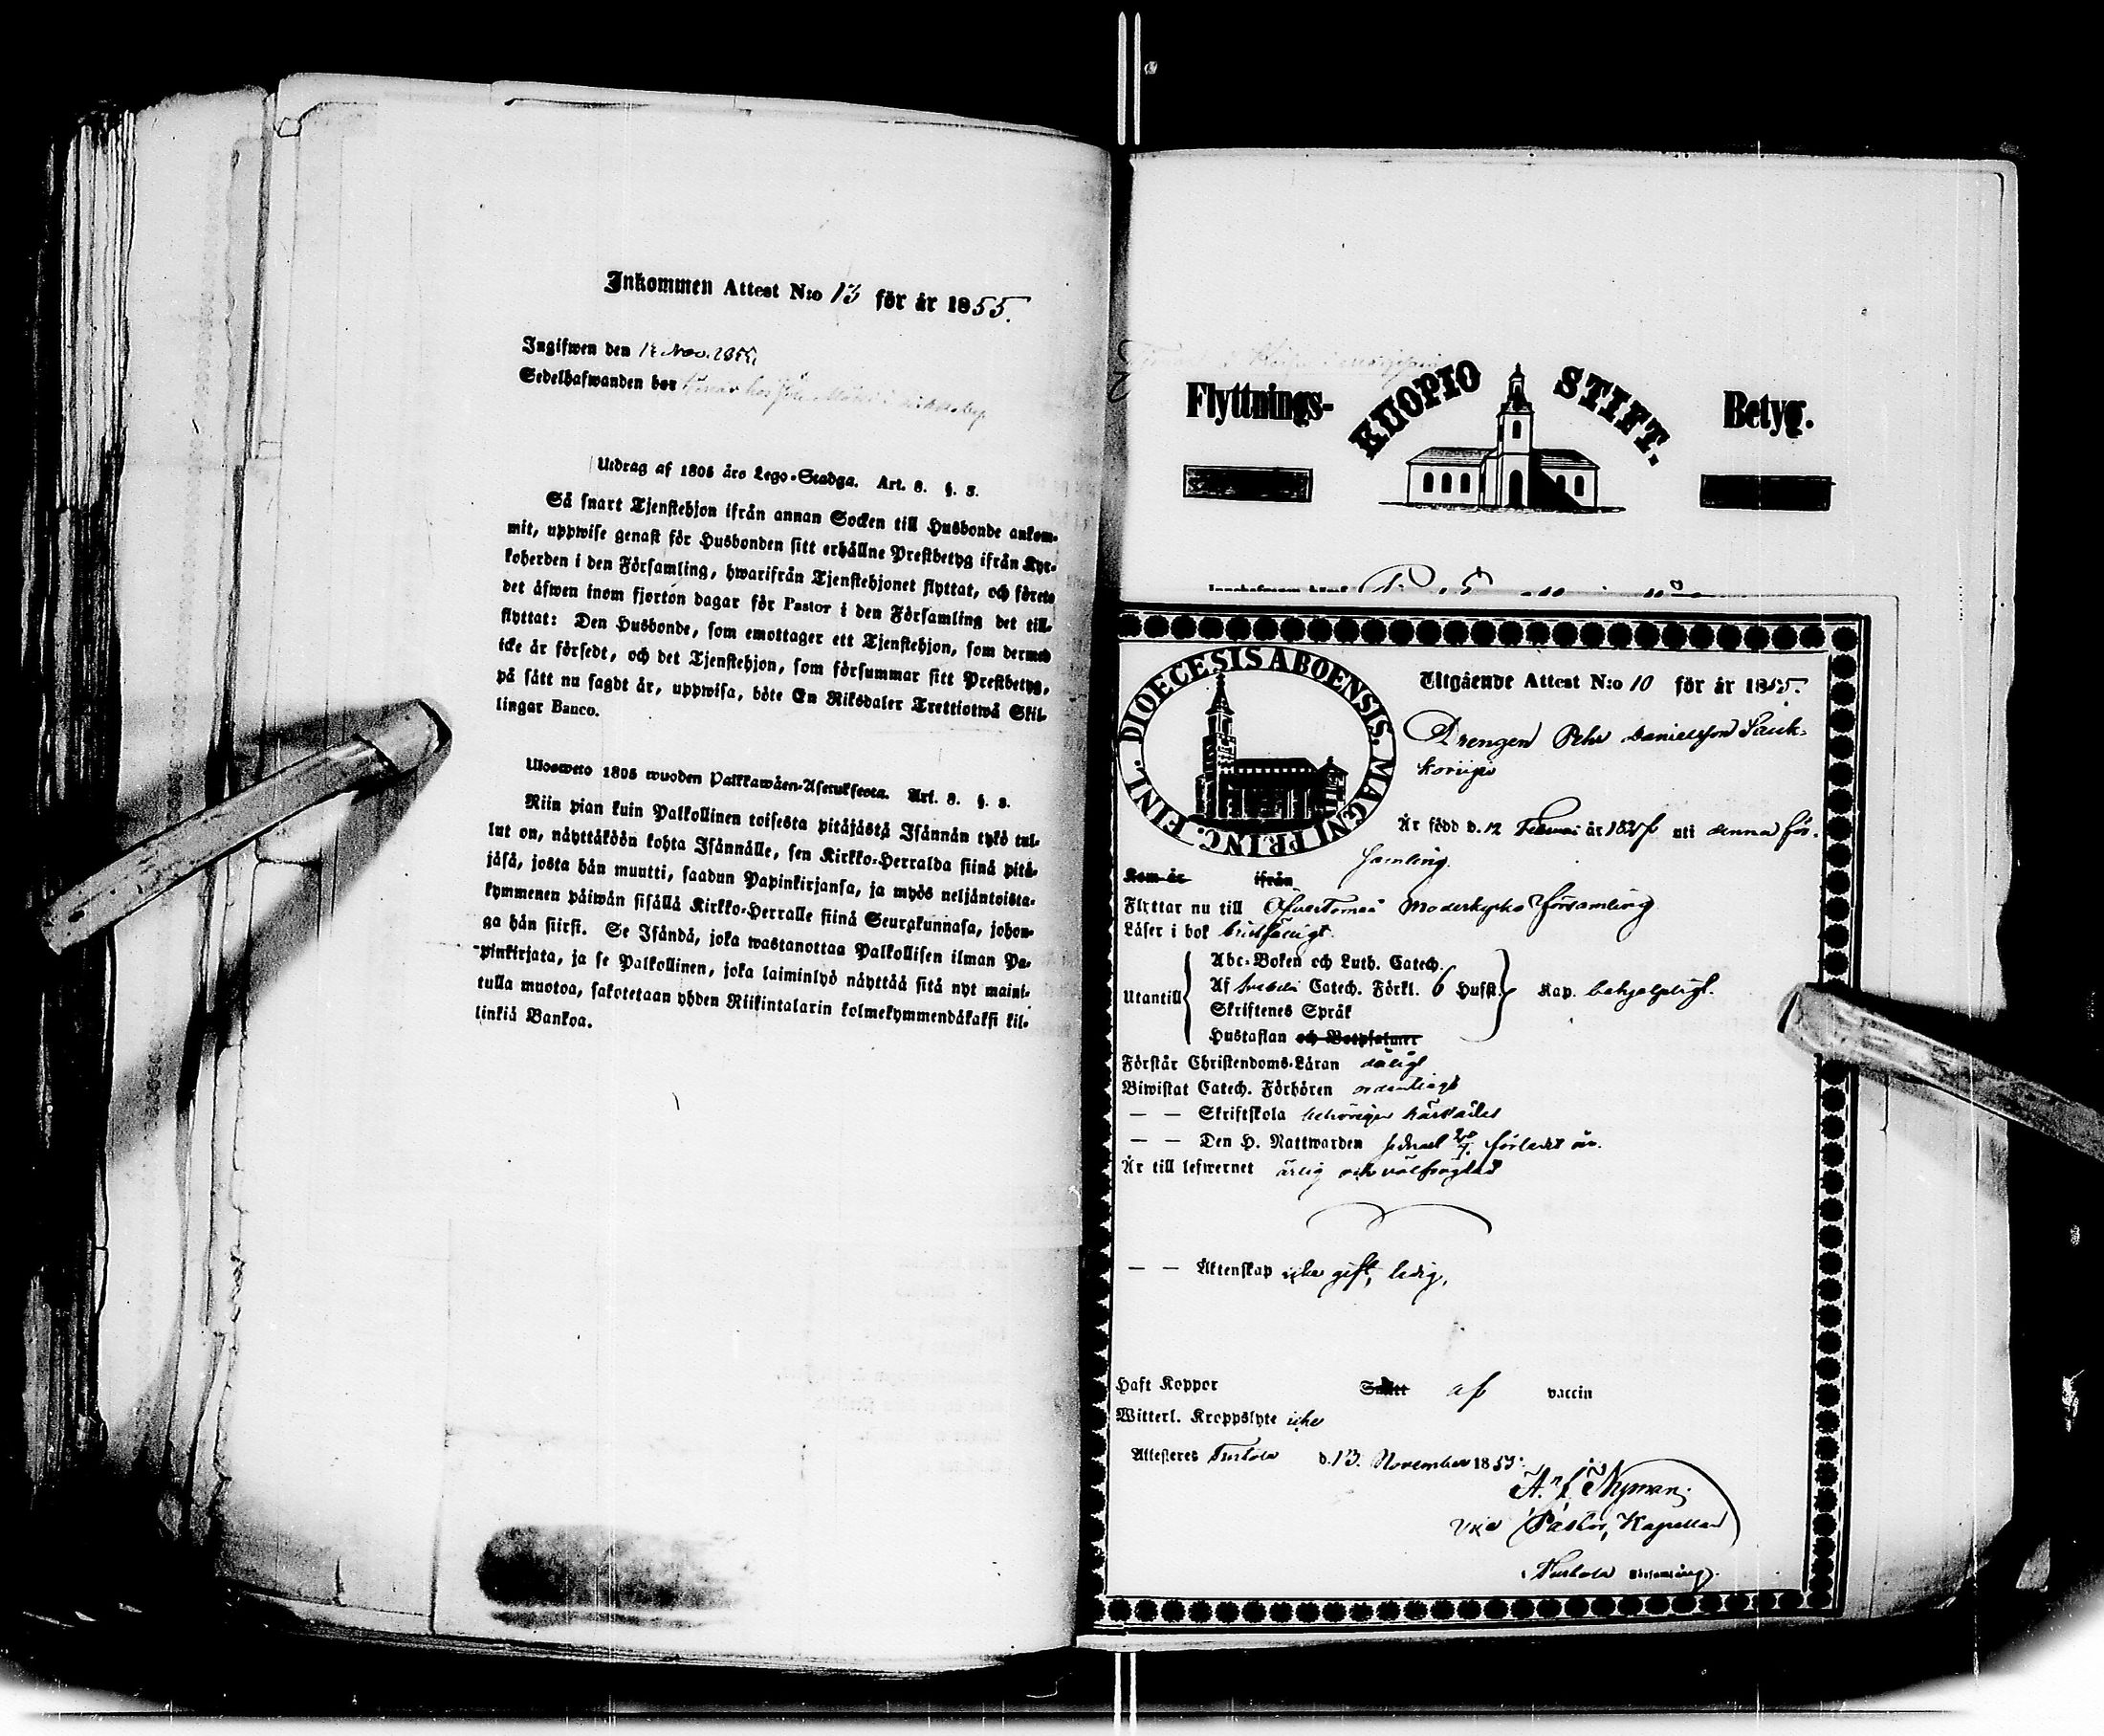 Inkommen Attest N:o 13 för år 1855.
Ingifwen den Nov. 1855
Sedelhafwanden bor
Utdrag af 1805 års Lego-Stadga. Art. 8. §. 5.
Så snart Tjenstehjon ifrån annan Socken till Husbonde ankom-
mit, uppwise genast för Husbonden sitt erhållne Prestbetyg ifrån Kyr-
koherden i den Församling, hwarifrån Tjenstehjonet flyttat, och förete
det äfwen inom fjorton dagar för Pastor i den Församling det till-
flyttat: Den Husbonde, som emottager ett Tjenstehjon, som dermed
icke är försedt, och det Tjenstehjon, som försummar sitt Prestbetyg,
på sätt nu sagdt är, uppwisa, böte En Riksdaler Trettiotwå Skil-
lingar Banco.
Uloswето 1805 wuoden Palkkawäen-Asetuksesta. Art. 8. §. 5.
Niin pian kuin Palkollinen toisesta pitäjästä Isännän tykö tul-
lut on, näyttäköön kohta Isännälle, sen Kirkko-Herralda siinä pitä-
jäsä, josta hän muutti, saadun Papinkirjansa, ja myös neljäntoista-
kymmenen päiwän sisällä Kirkko-Herralle siinä Seurakunnasa, johon-
ga hän siirsi. Se Isändä, joka wastanottaa Palkollisen ilman Pa-
pinkirjata, ja se Palkollinen, joka laiminlyö näyttää sitä nyt maini-
tulla muotoa, sakotetaan yhden Riikintalarin kolmekymmendäkaksi kil-
linkiä Bankoa.
Flyttnings- KUOPIO STIFT. Betyg.
DIOECESIS ABOENSIS. MAGNI PRINC. FINL.
Utgående Attest N:o 10 för år 1855.
Drengen Pehr Danielsson Sauk-
koriipi
Är född d. 12 Februari år 1837 uti denna för-
samling.
Kom år ifrån
Flyttar nu till Öfver Torneå Moderkyrko församling
Läser i bok bristfälligt.
Abc-Boken och Luth. Catech.
Utantill Af Svebelii Catech. Förkl. 6 Hufst. Kap. behjelpligt.
Skriftenes Språk
Hustaflan och Botpsalmer
Förstår Christendoms-Läran dåligt
Biwistat Catech. Förhören ordentligt
— — Skriftskola behörigen härstädes
— — Den H. Nattwarden förledet år.
Är till lefwernet ärlig och välfrägdad
— — Äktenskap icke gift, ledig.
Haft Koppor Smitt af vaccin
Witterl. Kroppslyte icke
Attesteres Turtola d. 13. November 1855.
A. J. Nyman.
Vice Pastor, Kapellan
i Turtola Församling.